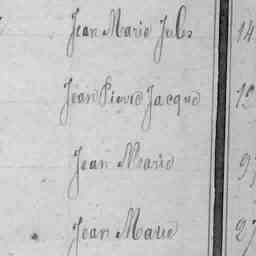 Jean Marie Jules 14
Jean Pierre Jacque 19
Jean Marie
Jean Marie 27